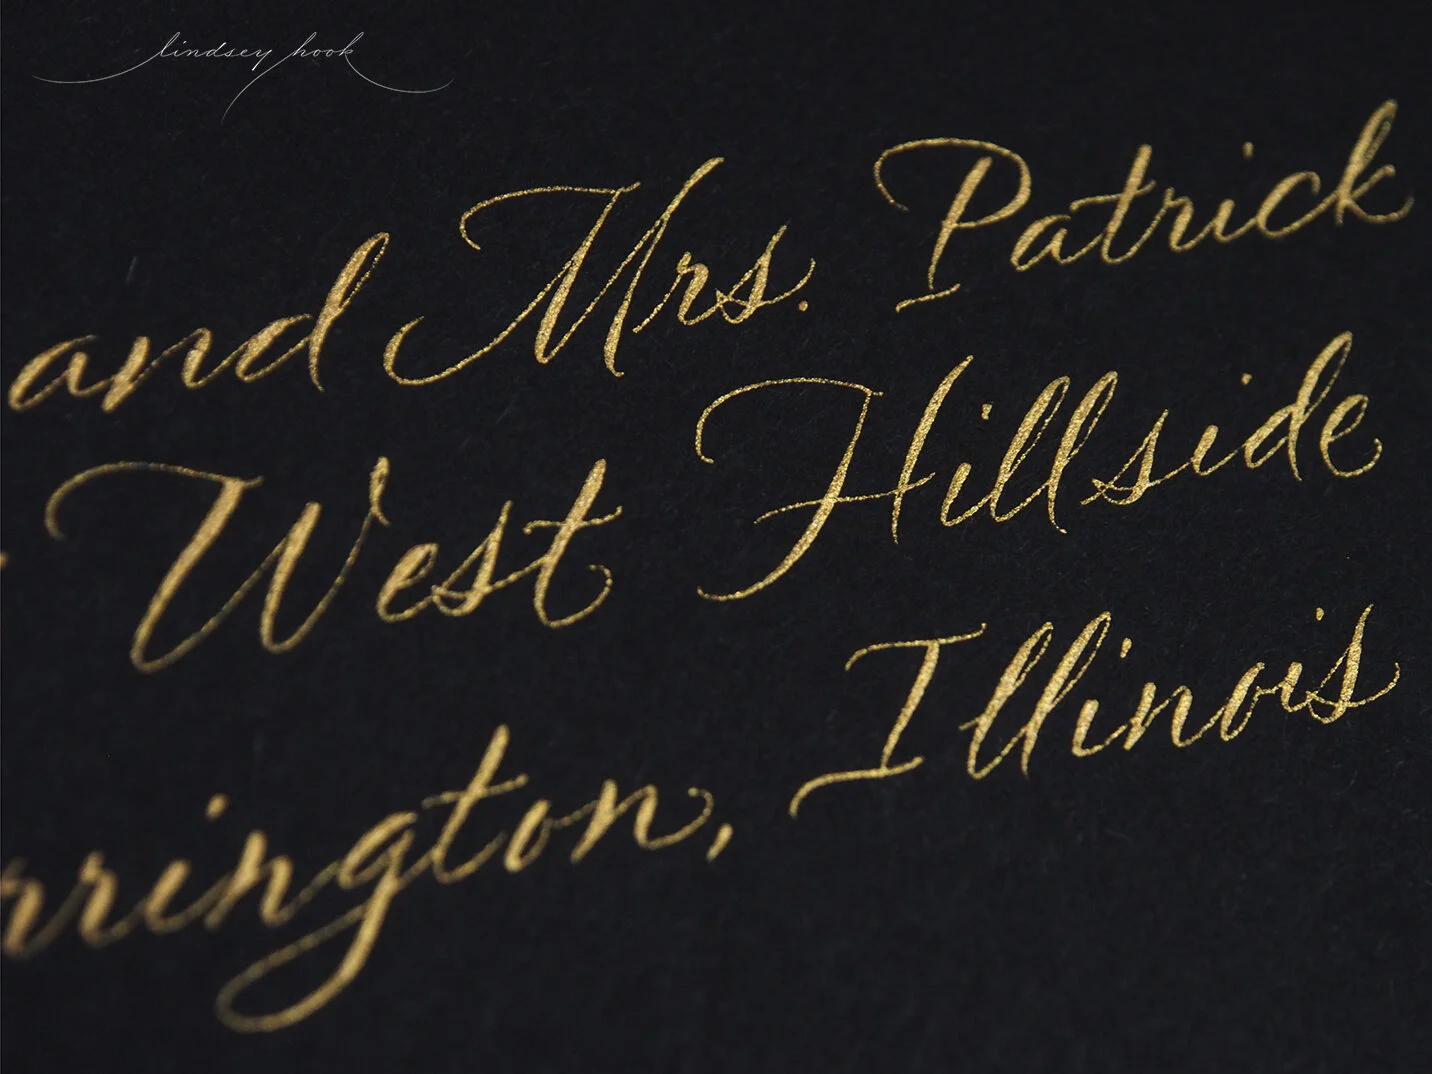 lindsey hook
and Mrs. Patrick
West Hillside
rrington, Illinois